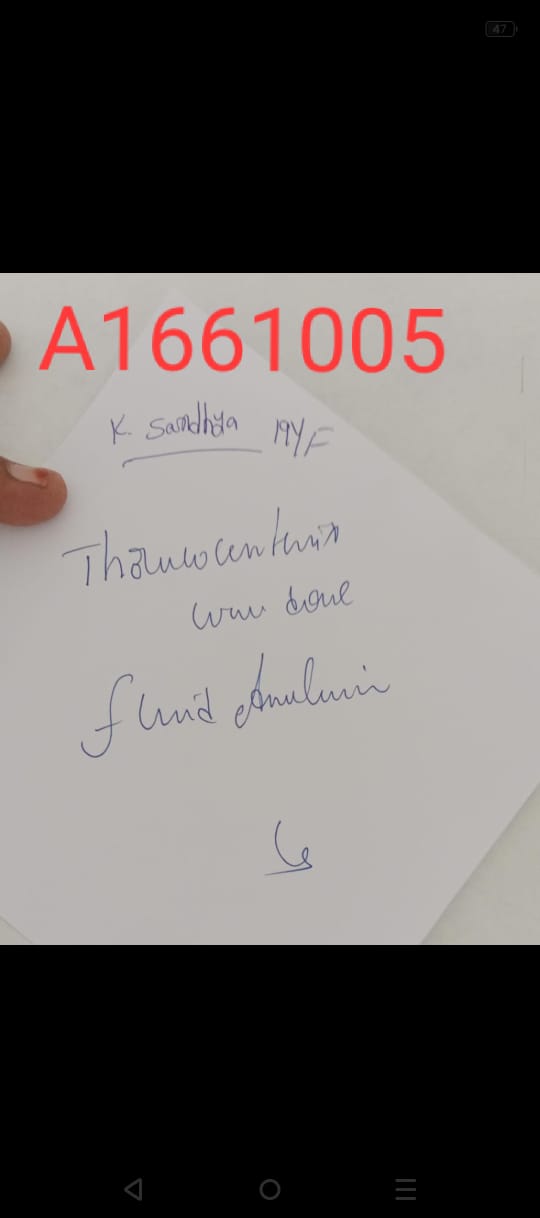 47
A1661005
K. Sandhya 19Y/F
Thoracocentesis
was done
fluid Analysis